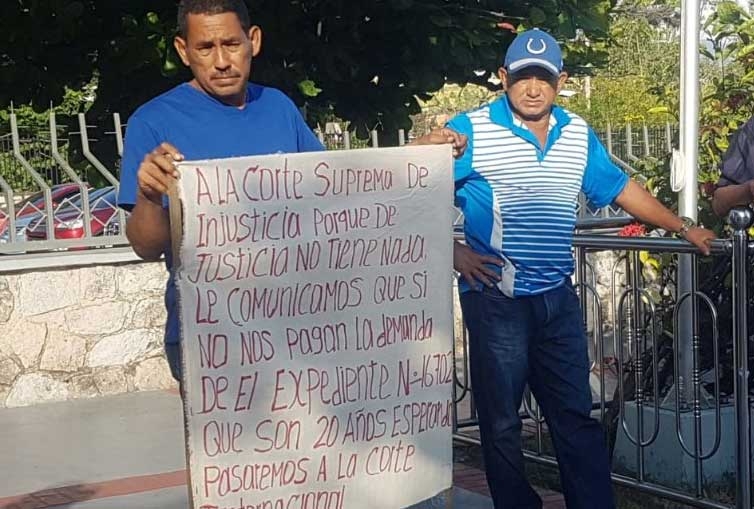 A LA CORTE SUPREMA DE
INJUSTICIA PORQUE DE
JUSTICIA NO TIENE NADA,
LE COMUNICAMOS QUE SI
NO NOS PAGAN LA DEMANDA
DE EL EXPEDIENTE Nº 16702
QUE SON 20 AÑOS ESPERANDO
PASAREMOS A LA CORTE
INTERNACIONAL